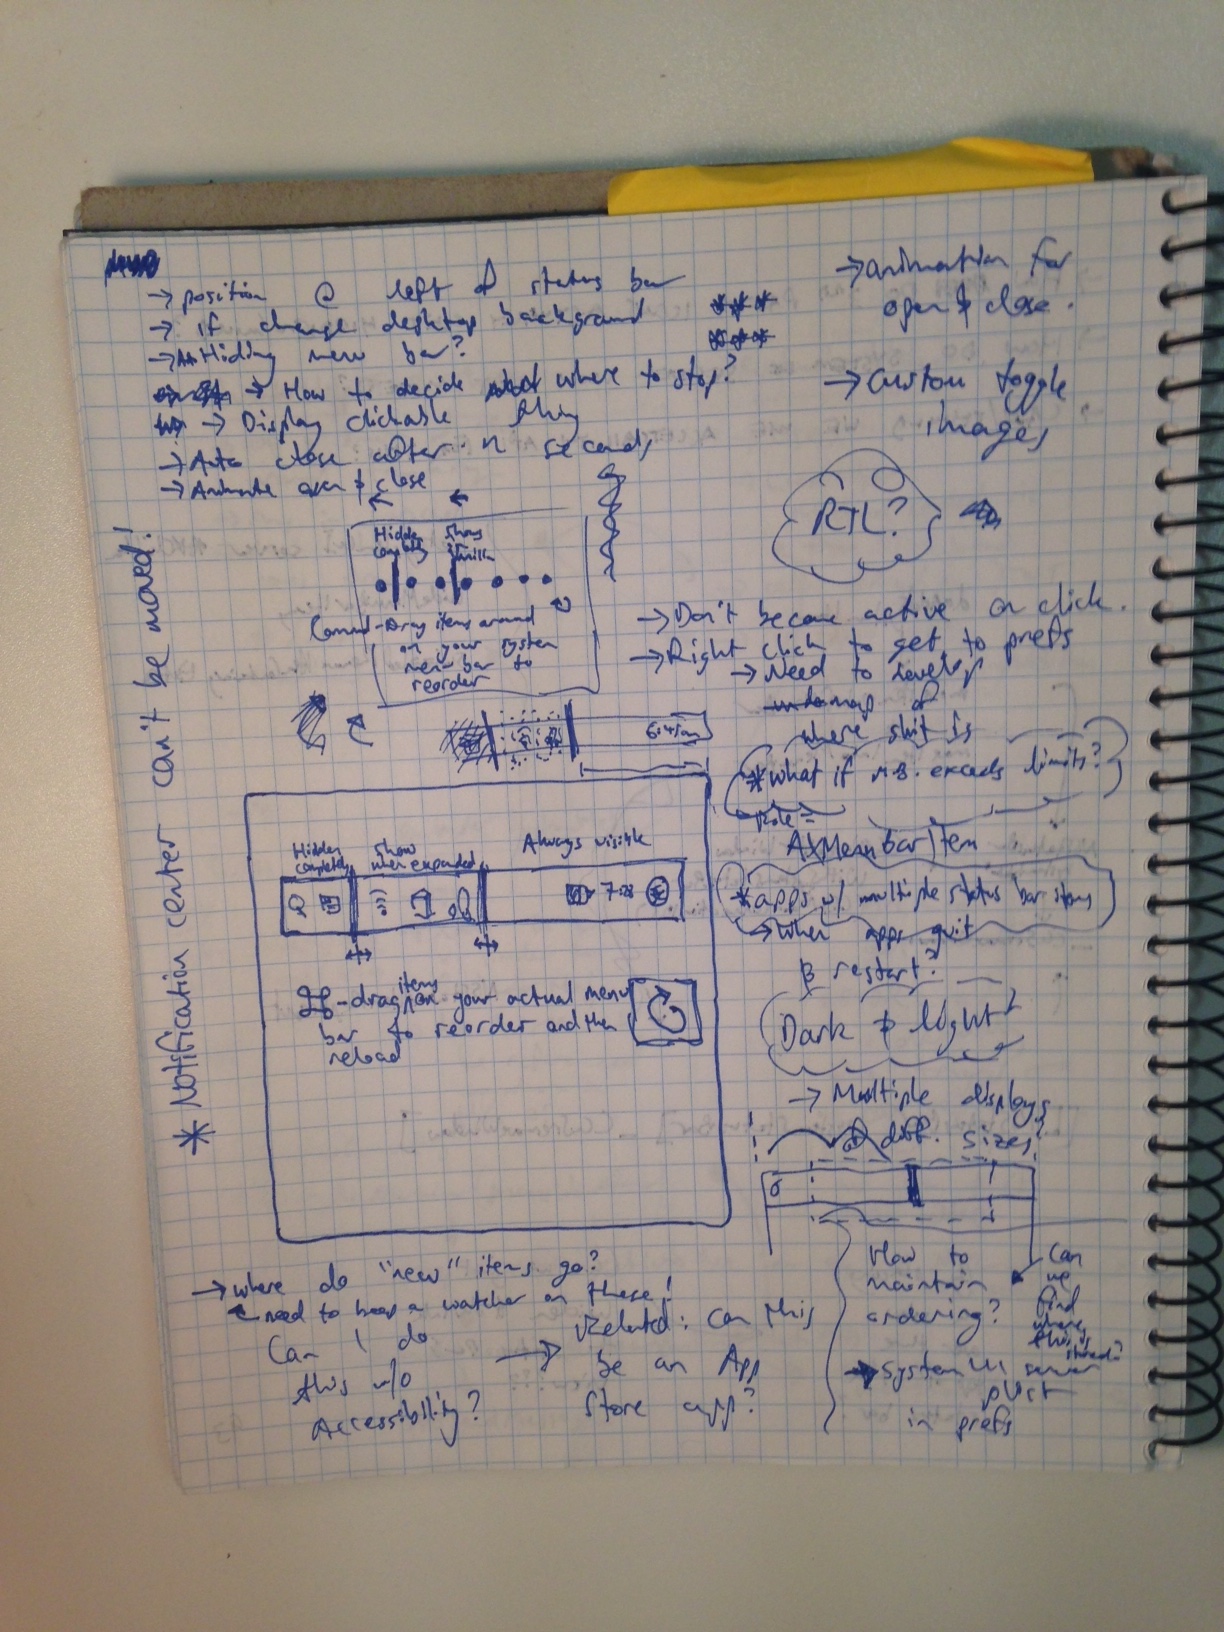 → position @ left of status bar
→ if change desktop background
→ Hiding menu bar?
→ How to decide where to stop?
→ Display clickable thing
→ Auto close after n seconds
→ Animate open & close
→ animation for
open & close.
→ Custom toggle
images
RTL?
* Notification center can't be moved!
Hidden completely
Show
Command-Drag items around
on your system
menu bar to
reorder
6:45am
→ Don't become active on click.
→ Right click to get to prefs
→ Need to develop
map of
where shit is
* What if m.b. exceeds limits?
Role =
AXMenuBarItem
* apps w/ multiple status bar items
→ When apps quit
& restart?
Dark & light
→ Multiple displays
@ diff. sizes?
Hidden completely
Show when expanded
Always visible
7:28
⌘-drag items on your actual menu
bar to reorder and then
reload
→ where do "new" items go?
need to keep a watcher on these!
Can I do
this w/o
Accessibility?
→ Related: can this
be an App
Store app?
How to
maintain
ordering?
→ System UI server
plist
in prefs
Can
we
find
where
this is
stored?